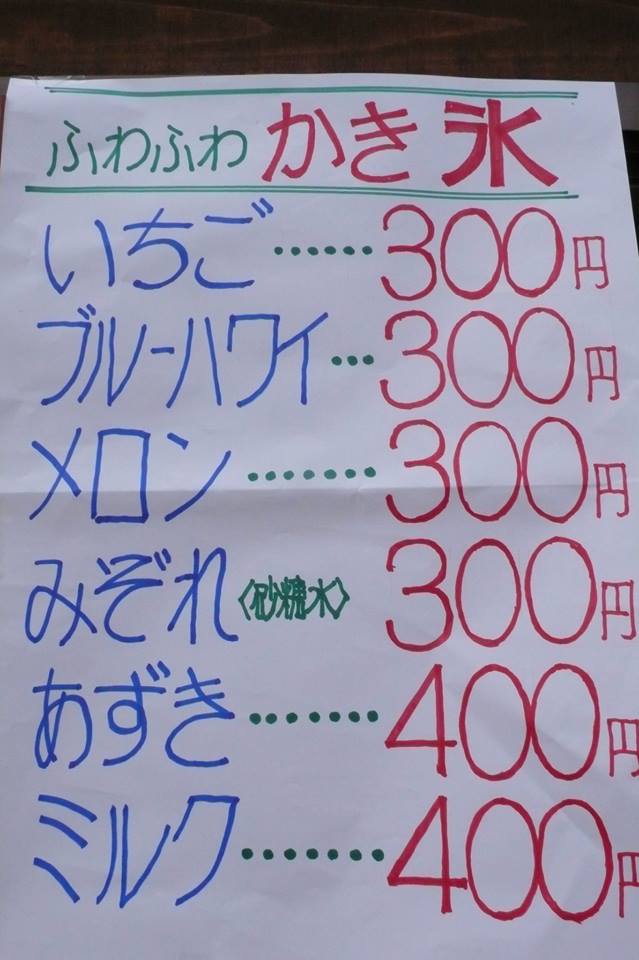 ふわふわ かき氷
いちご……300円
ブルーハワイ…300円
メロン……300円
みぞれ〈砂糖水〉300円
あずき……400円
ミルク……400円